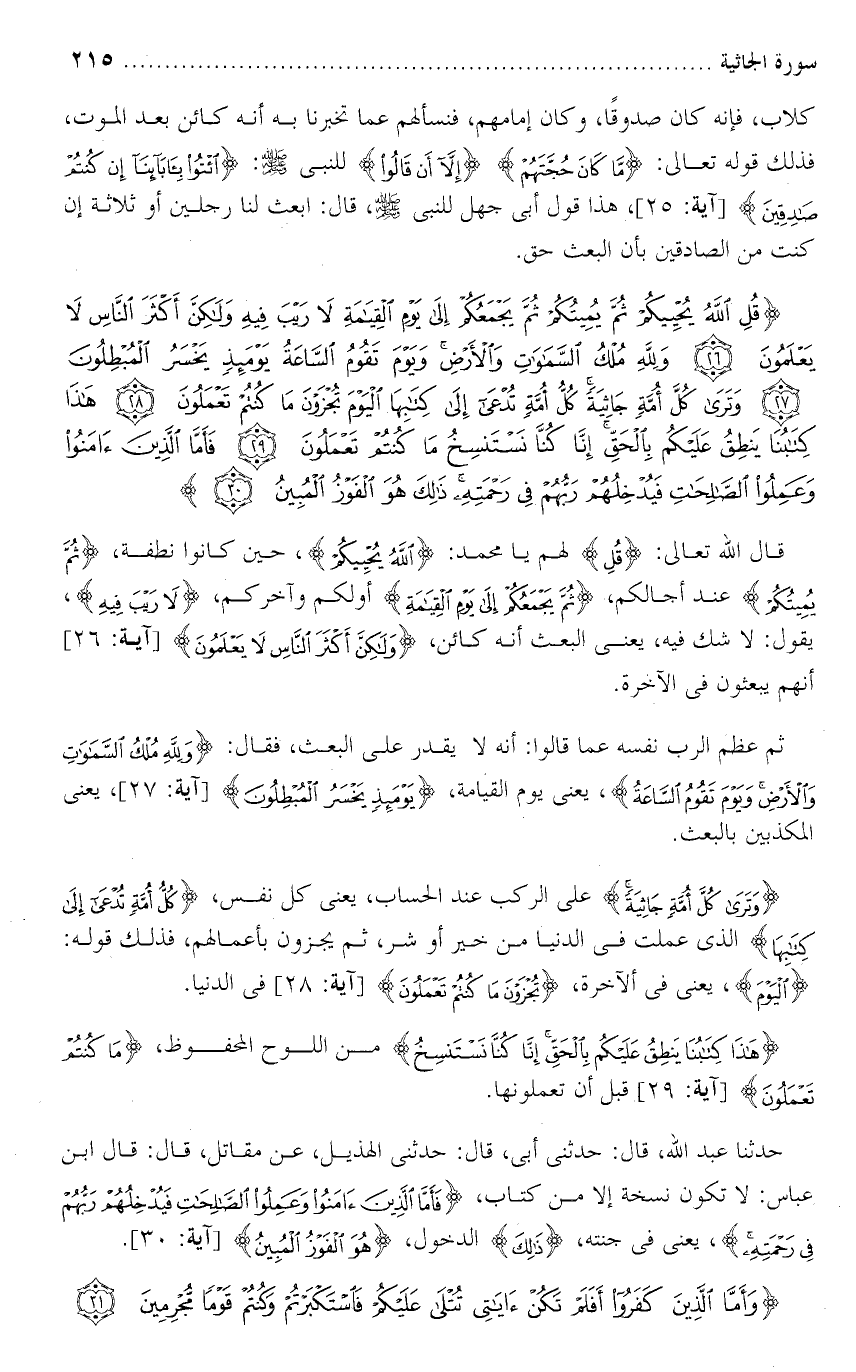 سورة الجاثية ........................................................................ ٢١٥
كلاب، فإنه كان صدوقًا، وكان إمامهم، فنسألهم عما تخبرنا به أنه كائن بعد الموت،
فذلك قوله تعالى: ﴿مَّا كَانَ حُجَّتَهُمْ﴾ ﴿إِلَّآ أَن قَالُوا۟﴾ للنبى ﷺ: ﴿ٱئْتُوا۟ بِـَٔابَآئِنَآ إِن كُنتُمْ
صَـٰدِقِينَ﴾ [آية: ٢٥]، هذا قول أبى جهل للنبى ﷺ، قال: ابعث لنا رجلين أو ثلاثة إن
كنت من الصادقين بأن البعث حق.
﴿قُلِ ٱللَّهُ يُحْيِيكُمْ ثُمَّ يُمِيتُكُمْ ثُمَّ يَجْمَعُكُمْ إِلَىٰ يَوْمِ ٱلْقِيَـٰمَةِ لَا رَيْبَ فِيهِ وَلَـٰكِنَّ أَكْثَرَ ٱلنَّاسِ لَا
يَعْلَمُونَ ٢٦ وَلِلَّهِ مُلْكُ ٱلسَّمَـٰوَٰتِ وَٱلْأَرْضِ ۚ وَيَوْمَ تَقُومُ ٱلسَّاعَةُ يَوْمَئِذٍ يَخْسَرُ ٱلْمُبْطِلُونَ
٢٧ وَتَرَىٰ كُلَّ أُمَّةٍ جَاثِيَةً ۚ كُلُّ أُمَّةٍ تُدْعَىٰٓ إِلَىٰ كِتَـٰبِهَا ٱلْيَوْمَ تُجْزَوْنَ مَا كُنتُمْ تَعْمَلُونَ ٢٨ هَـٰذَا
كِتَـٰبُنَا يَنطِقُ عَلَيْكُم بِٱلْحَقِّ ۚ إِنَّا كُنَّا نَسْتَنسِخُ مَا كُنتُمْ تَعْمَلُونَ ٢٩ فَأَمَّا ٱلَّذِينَ ءَامَنُوا۟
وَعَمِلُوا۟ ٱلصَّـٰلِحَـٰتِ فَيُدْخِلُهُمْ رَبُّهُمْ فِى رَحْمَتِهِۦ ۚ ذَٰلِكَ هُوَ ٱلْفَوْزُ ٱلْمُبِينُ ٣٠ ﴾
قال الله تعالى: ﴿قُلِ﴾ لهم يا محمد: ﴿ٱللَّهُ يُحْيِيكُمْ﴾، حين كانوا نطفة، ﴿ثُمَّ
يُمِيتُكُمْ﴾ عند أجالكم، ﴿ثُمَّ يَجْمَعُكُمْ إِلَىٰ يَوْمِ ٱلْقِيَـٰمَةِ﴾ أولكم وآخركم، ﴿لَا رَيْبَ فِيهِ﴾،
يقول: لا شك فيه، يعنى البعث أنه كائن، ﴿وَلَـٰكِنَّ أَكْثَرَ ٱلنَّاسِ لَا يَعْلَمُونَ﴾ [آية: ٢٦]
أنهم يبعثون فى الآخرة.
ثم عظم الرب نفسه عما قالوا: أنه لا يقدر على البعث، فقال: ﴿وَلِلَّهِ مُلْكُ ٱلسَّمَـٰوَٰتِ
وَٱلْأَرْضِ ۚ وَيَوْمَ تَقُومُ ٱلسَّاعَةُ﴾، يعنى يوم القيامة، ﴿يَوْمَئِذٍ يَخْسَرُ ٱلْمُبْطِلُونَ﴾ [آية: ٢٧]، يعنى
المكذبين بالبعث.
﴿وَتَرَىٰ كُلَّ أُمَّةٍ جَاثِيَةً ۚ﴾ على الركب عند الحساب، يعنى كل نفس، ﴿كُلُّ أُمَّةٍ تُدْعَىٰٓ إِلَىٰ
كِتَـٰبِهَا﴾ الذى عملت فى الدنيا من خير أو شر، ثم يجزون بأعمالهم، فذلك قوله:
﴿ٱلْيَوْمَ﴾، يعنى فى ألآخرة، ﴿تُجْزَوْنَ مَا كُنتُمْ تَعْمَلُونَ﴾ [آية: ٢٨] فى الدنيا.
﴿هَـٰذَا كِتَـٰبُنَا يَنطِقُ عَلَيْكُم بِٱلْحَقِّ ۚ إِنَّا كُنَّا نَسْتَنسِخُ﴾ من اللوح المحفوظ، ﴿مَا كُنتُمْ
تَعْمَلُونَ﴾ [آية: ٢٩] قبل أن تعملونها.
حدثنا عبد الله، قال: حدثنى أبى، قال: حدثنى الهذيل، عن مقاتل، قال: قال ابن
عباس: لا تكون نسخة إلا من كتاب، ﴿فَأَمَّا ٱلَّذِينَ ءَامَنُوا۟ وَعَمِلُوا۟ ٱلصَّـٰلِحَـٰتِ فَيُدْخِلُهُمْ رَبُّهُمْ
فِى رَحْمَتِهِۦ ۚ﴾، يعنى فى جنته، ﴿ذَٰلِكَ﴾ الدخول، ﴿هُوَ ٱلْفَوْزُ ٱلْمُبِينُ﴾ [آية: ٣٠].
﴿وَأَمَّا ٱلَّذِينَ كَفَرُوٓا۟ أَفَلَمْ تَكُنْ ءَايَـٰتِى تُتْلَىٰ عَلَيْكُمْ فَٱسْتَكْبَرْتُمْ وَكُنتُمْ قَوْمًا مُّجْرِمِينَ ٣١